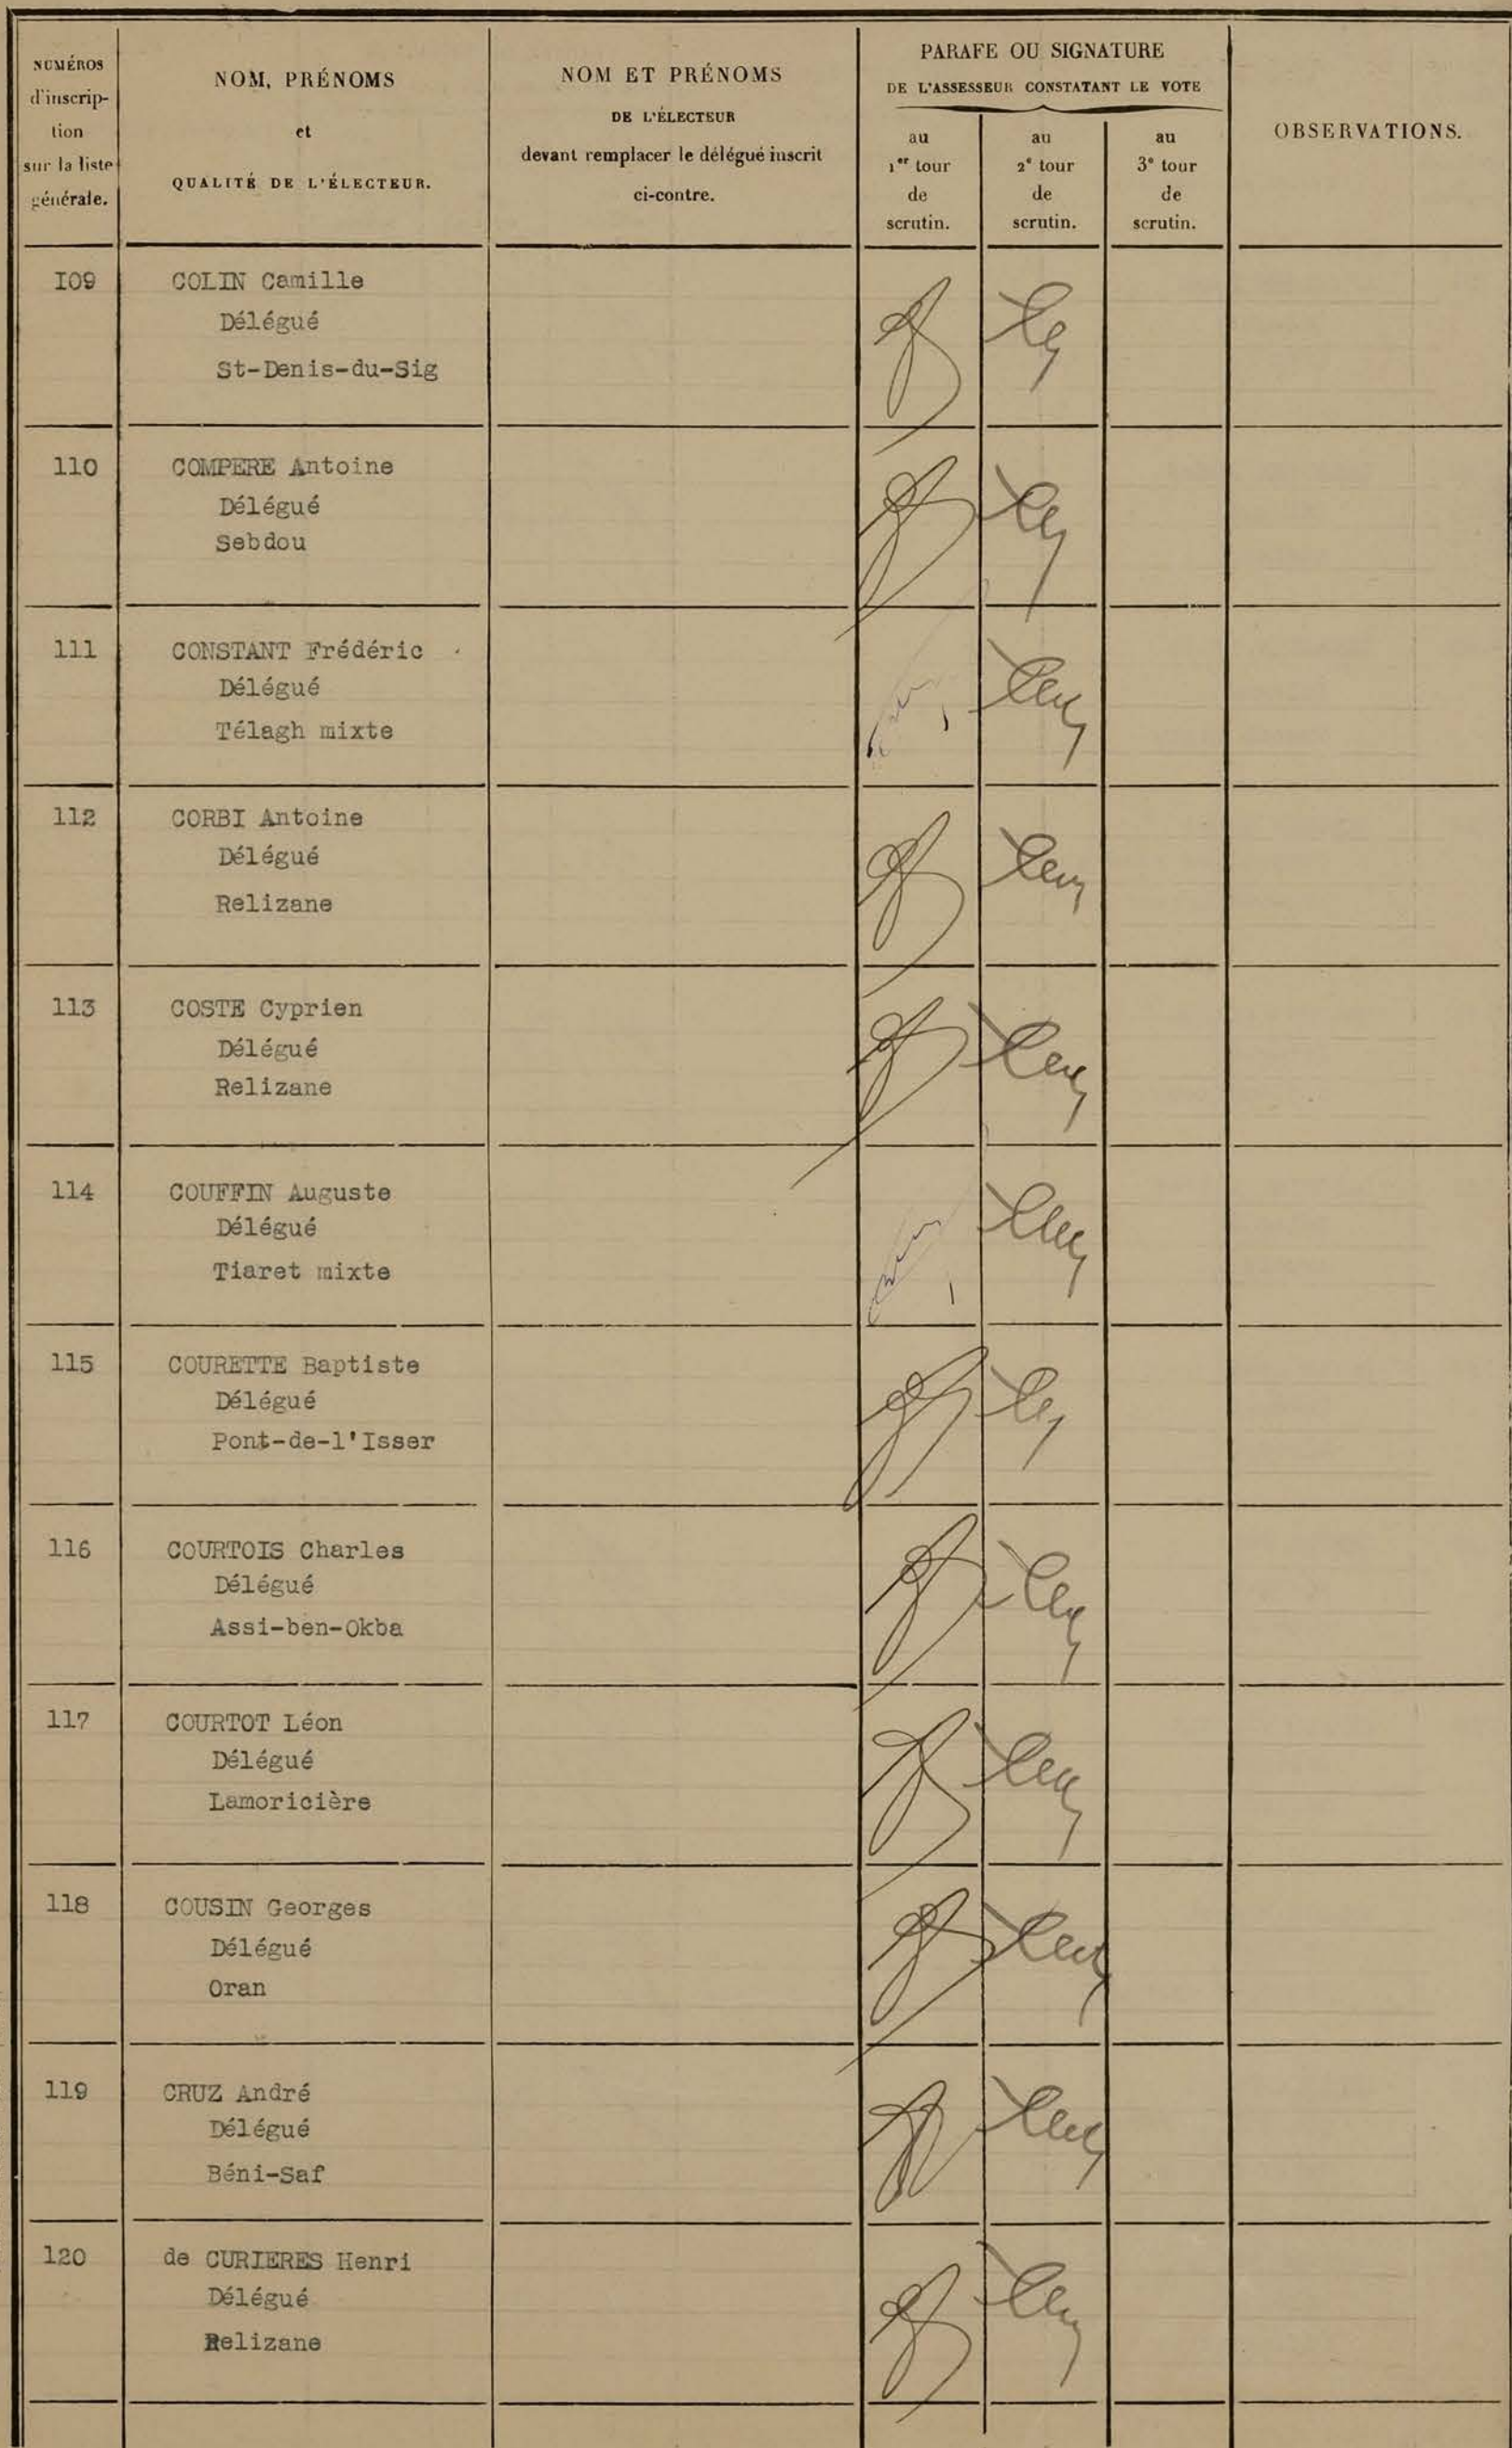 NUMÉROS
d'inscrip-
tion
sur la liste
générale.
NOM, PRÉNOMS
et
QUALITÉ DE L'ÉLECTEUR.
NOM ET PRÉNOMS
DE L'ÉLECTEUR
devant remplacer le délégué inscrit
ci-contre.
PARAFE OU SIGNATURE
DE L'ASSESSEUR CONSTATANT LE VOTE
au
1er tour
de
scrutin.
au
2e tour
de
scrutin.
au
3e tour
de
scrutin.
OBSERVATIONS.
I09 COLIN Camille
Délégué
St-Denis-du-Sig
110 COMPERE Antoine
Délégué
Sebdou
111 CONSTANT Frédéric
Délégué
Télagh mixte
112 CORBI Antoine
Délégué
Relizane
113 COSTE Cyprien
Délégué
Relizane
114 COUFFIN Auguste
Délégué
Tiaret mixte
115 COURETTE Baptiste
Délégué
Pont-de-l'Isser
116 COURTOIS Charles
Délégué
Assi-ben-Okba
117 COURTOT Léon
Délégué
Lamoricière
118 COUSIN Georges
Délégué
Oran
119 CRUZ André
Délégué
Béni-Saf
120 de CURIERES Henri
Délégué
Relizane